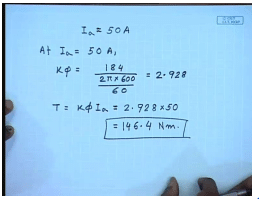 Ia = 50 A
At Ia = 50 A,
Kφ = 184 / (2π×600 / 60) = 2·928
T = KφIa = 2·928 × 50
= 146·4 Nm.